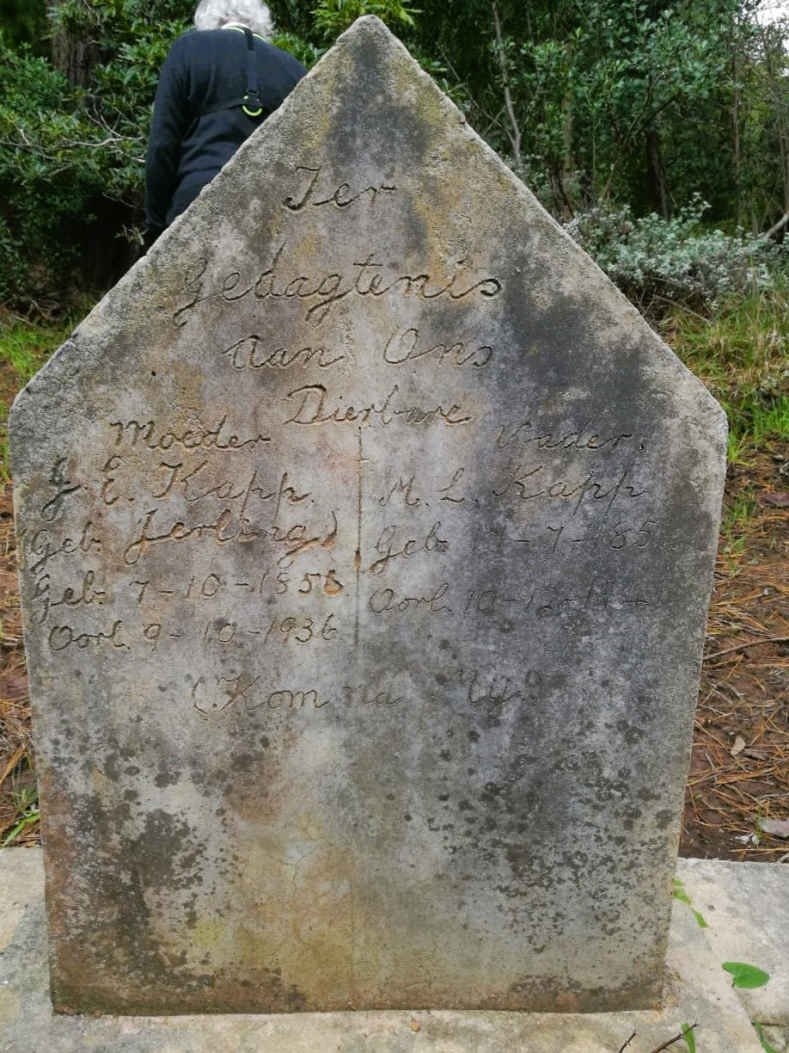 Ter
Gedagtenis
aan Ons
Dierbare
Moeder
J. E. Kapp.
(Geb. Jerling)
Geb. 7-10-1858
Oorl. 9-10-1936
Vader.
M. L. Kapp
Geb. -7-185
Oorl. 10-12-
(Kom na My.)